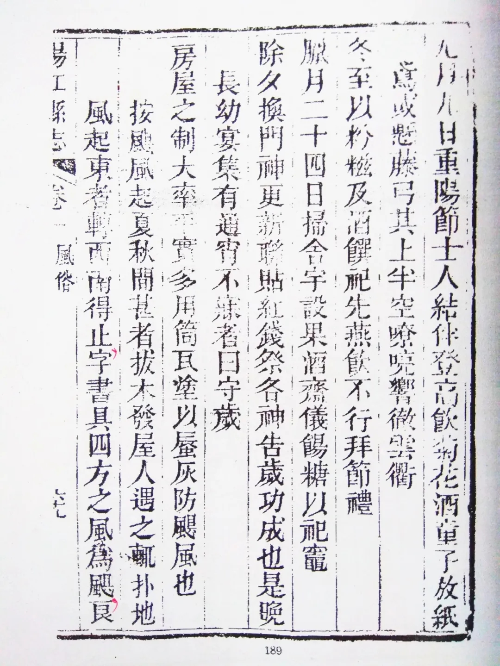 九月九日重陽節士人結伴登高飲菊花酒童子放紙
鳶或懸藤弓其上半空嘹喨響徹雲衢
冬至以粉糍及酒饌祀先燕飲不行拜節禮
臘月二十四日掃舍宇設果酒齋儀餳糖以祀竈
除夕換門神更新聯貼紅錢祭各神告歲功成也是晚
長幼宴集有通宵不寐者曰守歲
房屋之制大率平實多用筒瓦塗以蜃灰防颶風也
按颶風起夏秋間甚者拔木發屋人遇之輒扑地
風起東者轉西南得止字書具四方之風爲颶
陽江縣志
卷一
風俗
189